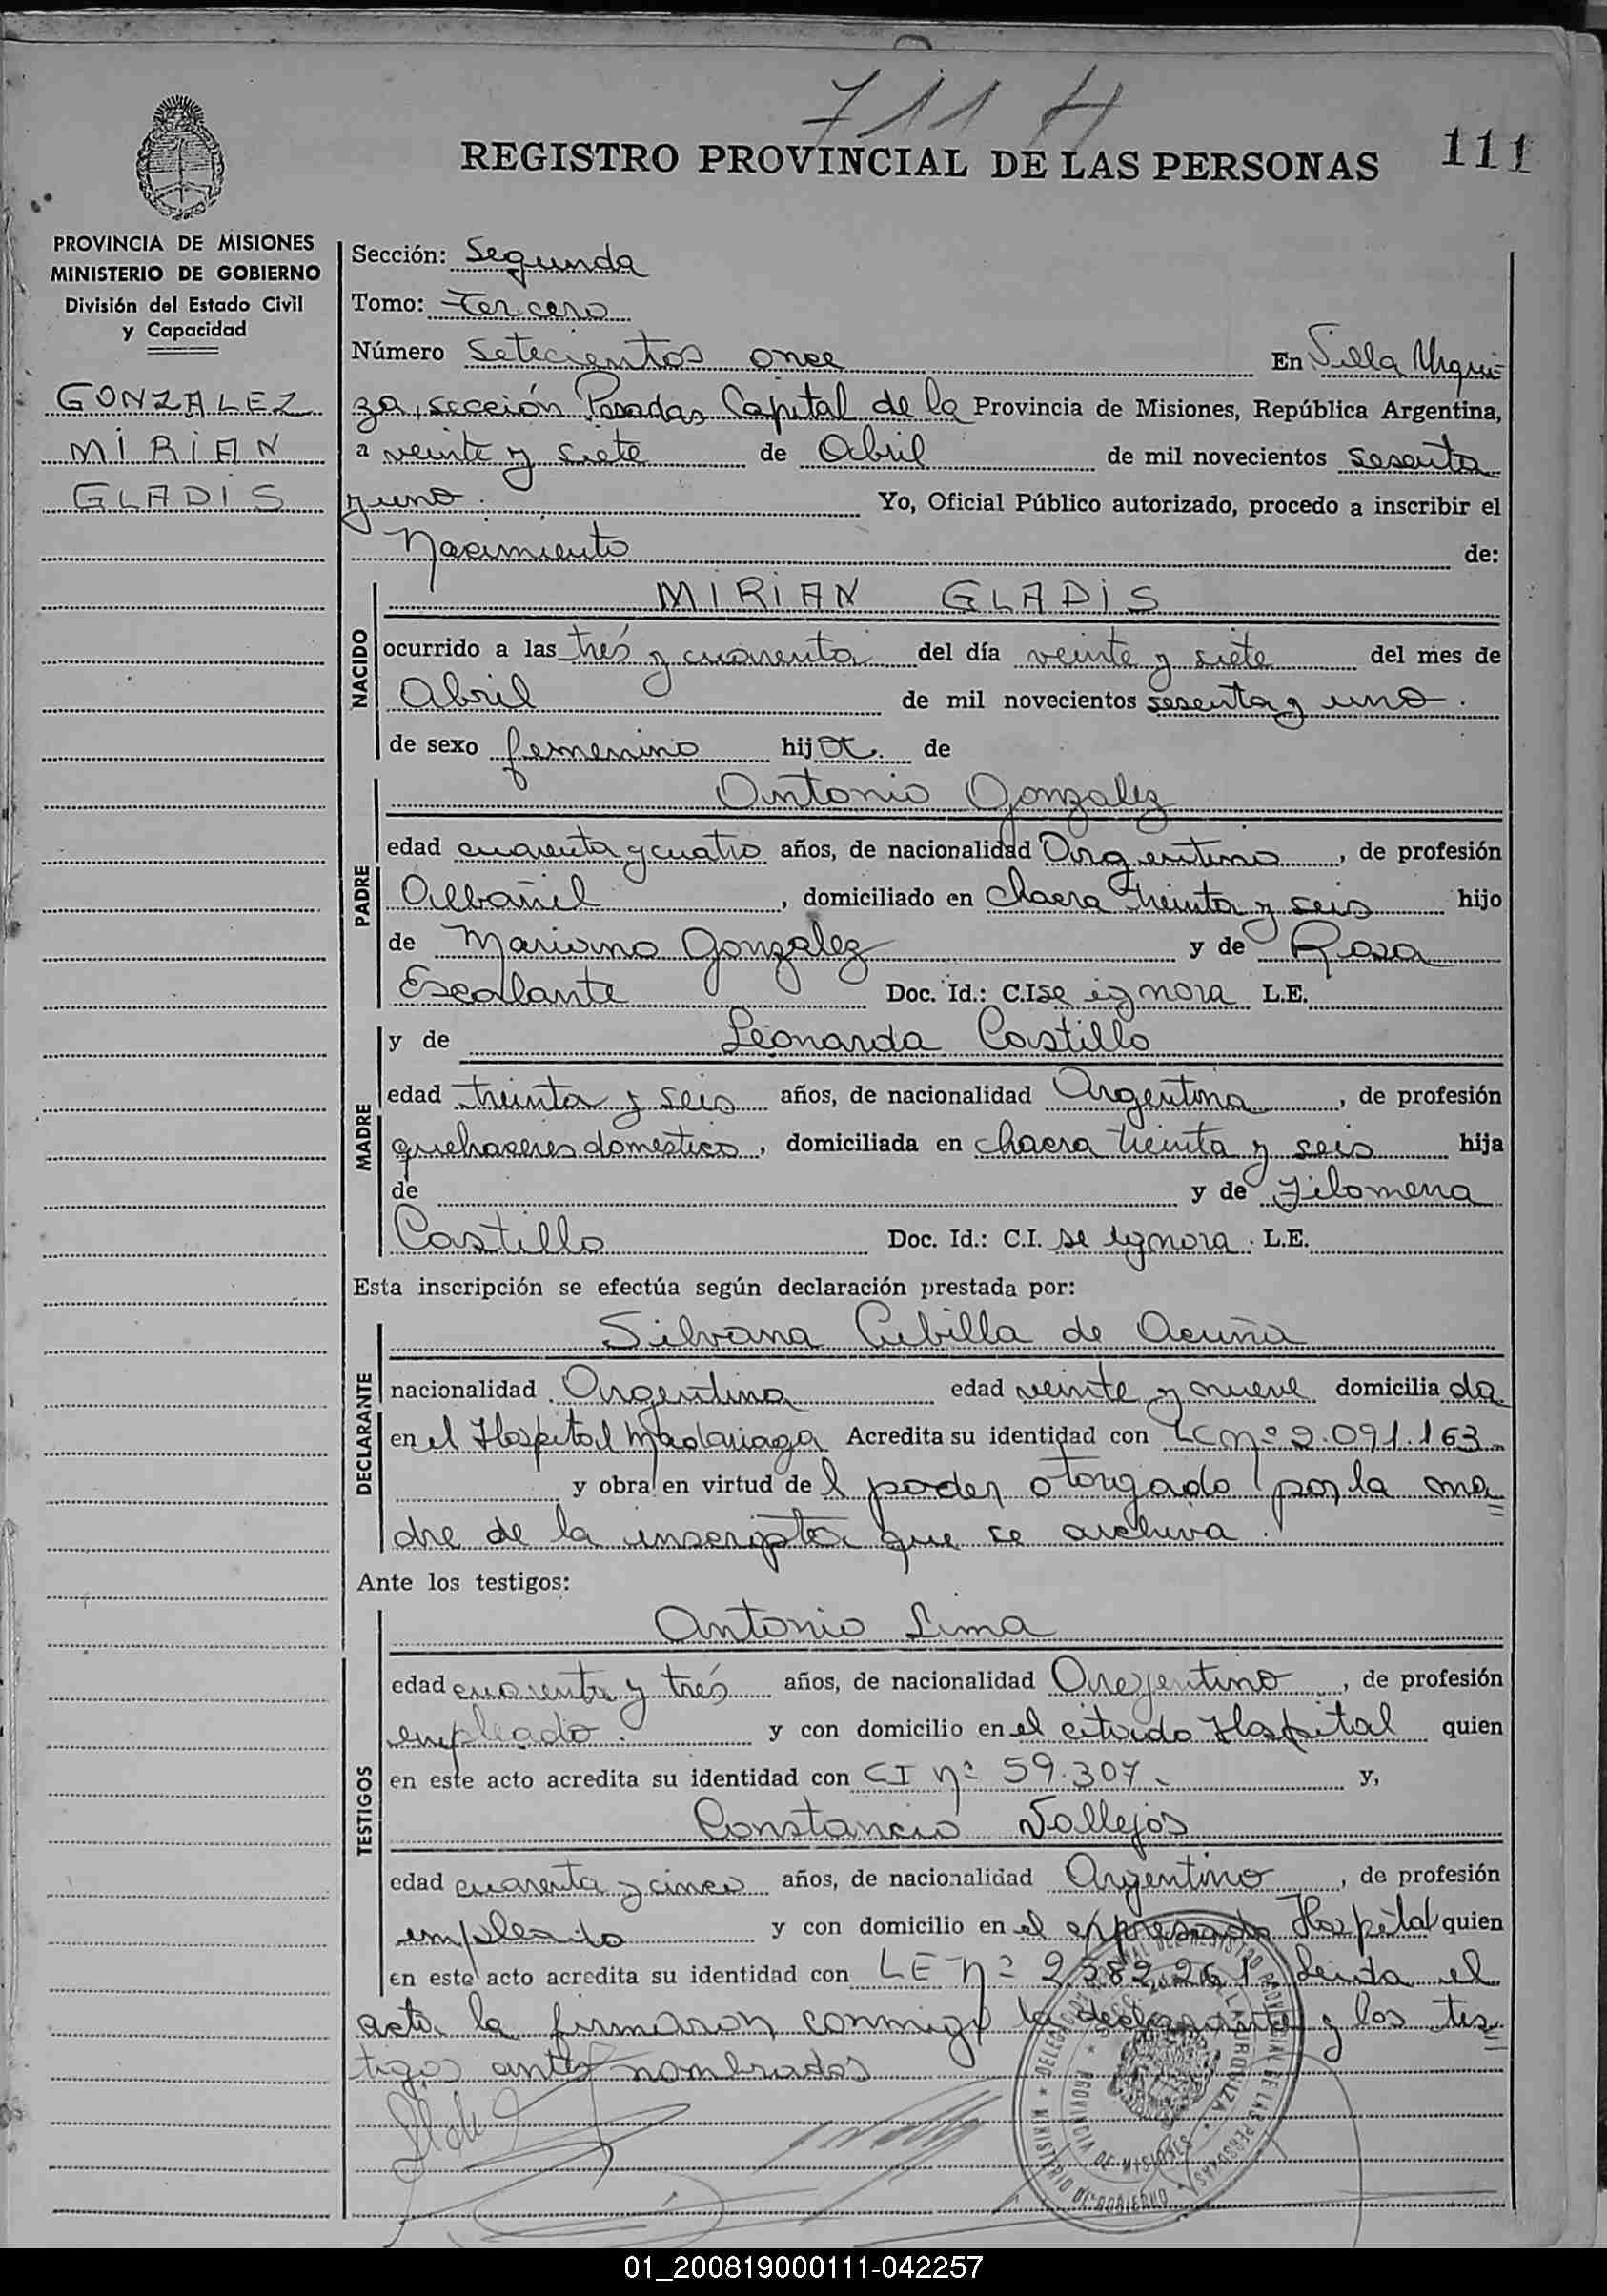 711 H
REGISTRO PROVINCIAL DE LAS PERSONAS
111
PROVINCIA DE MISIONES
MINISTERIO DE GOBIERNO
División del Estado Civil
y Capacidad
GONZALEZ
MIRIAN
GLADIS
Sección: Segunda
Tomo: Tercero
Número Setecientos once En Villa Urqui
za, sección Posadas Capital de la Provincia de Misiones, República Argentina,
a veinte y siete de Abril de mil novecientos sesenta
y uno. Yo, Oficial Público autorizado, procedo a inscribir el
Nacimiento de:
NACIDO
MIRIAN GLADIS
ocurrido a las trés y cuarenta del día veinte y siete del mes de
Abril de mil novecientos sesenta y uno.
de sexo femenino hija. de
PADRE
Antonio Gonzalez
edad cuarenta y cuatro años, de nacionalidad Argentino, de profesión
Albañil, domiciliado en chacra treinta y seis hijo
de Mariano Gonzalez y de Rosa
Escalante Doc. Id.: C.I se ignora L.E.
MADRE
y de Leonarda Castillo
edad treinta y seis años, de nacionalidad Argentina, de profesión
quehaceres domestico, domiciliada en chacra treinta y seis hija
de y de Filomena
Castillo Doc. Id.: C.I. se ignora. L.E.
Esta inscripción se efectúa según declaración prestada por:
DECLARANTE
Silvana Cubilla de Acuña
nacionalidad Argentina edad veinte y nueve domiciliada
en el Hospital Madariaga Acredita su identidad con LC nº 2.091.163
y obra en virtud del poder otorgado por la ma
dre de la inscripta que se archiva.
Ante los testigos:
TESTIGOS
Antonio Lima
edad cuarenta y trés años, de nacionalidad Argentino, de profesión
empleado. y con domicilio en el citado Hospital quien
en este acto acredita su identidad con CI nº 59.307 y,
Constancio Vallejos
edad cuarenta y cinco años, de nacionalidad Argentino, de profesión
empleado y con domicilio en el expresado Hospital quien
en este acto acredita su identidad con LE nº 2.582.261. Leida el
acta la firmaron conmigo la declarante y los tes
tigos antes nombrados
PROVINCIA DE MISIONES
MINISTERIO DE GOBIERNO
01_200819000111-042257